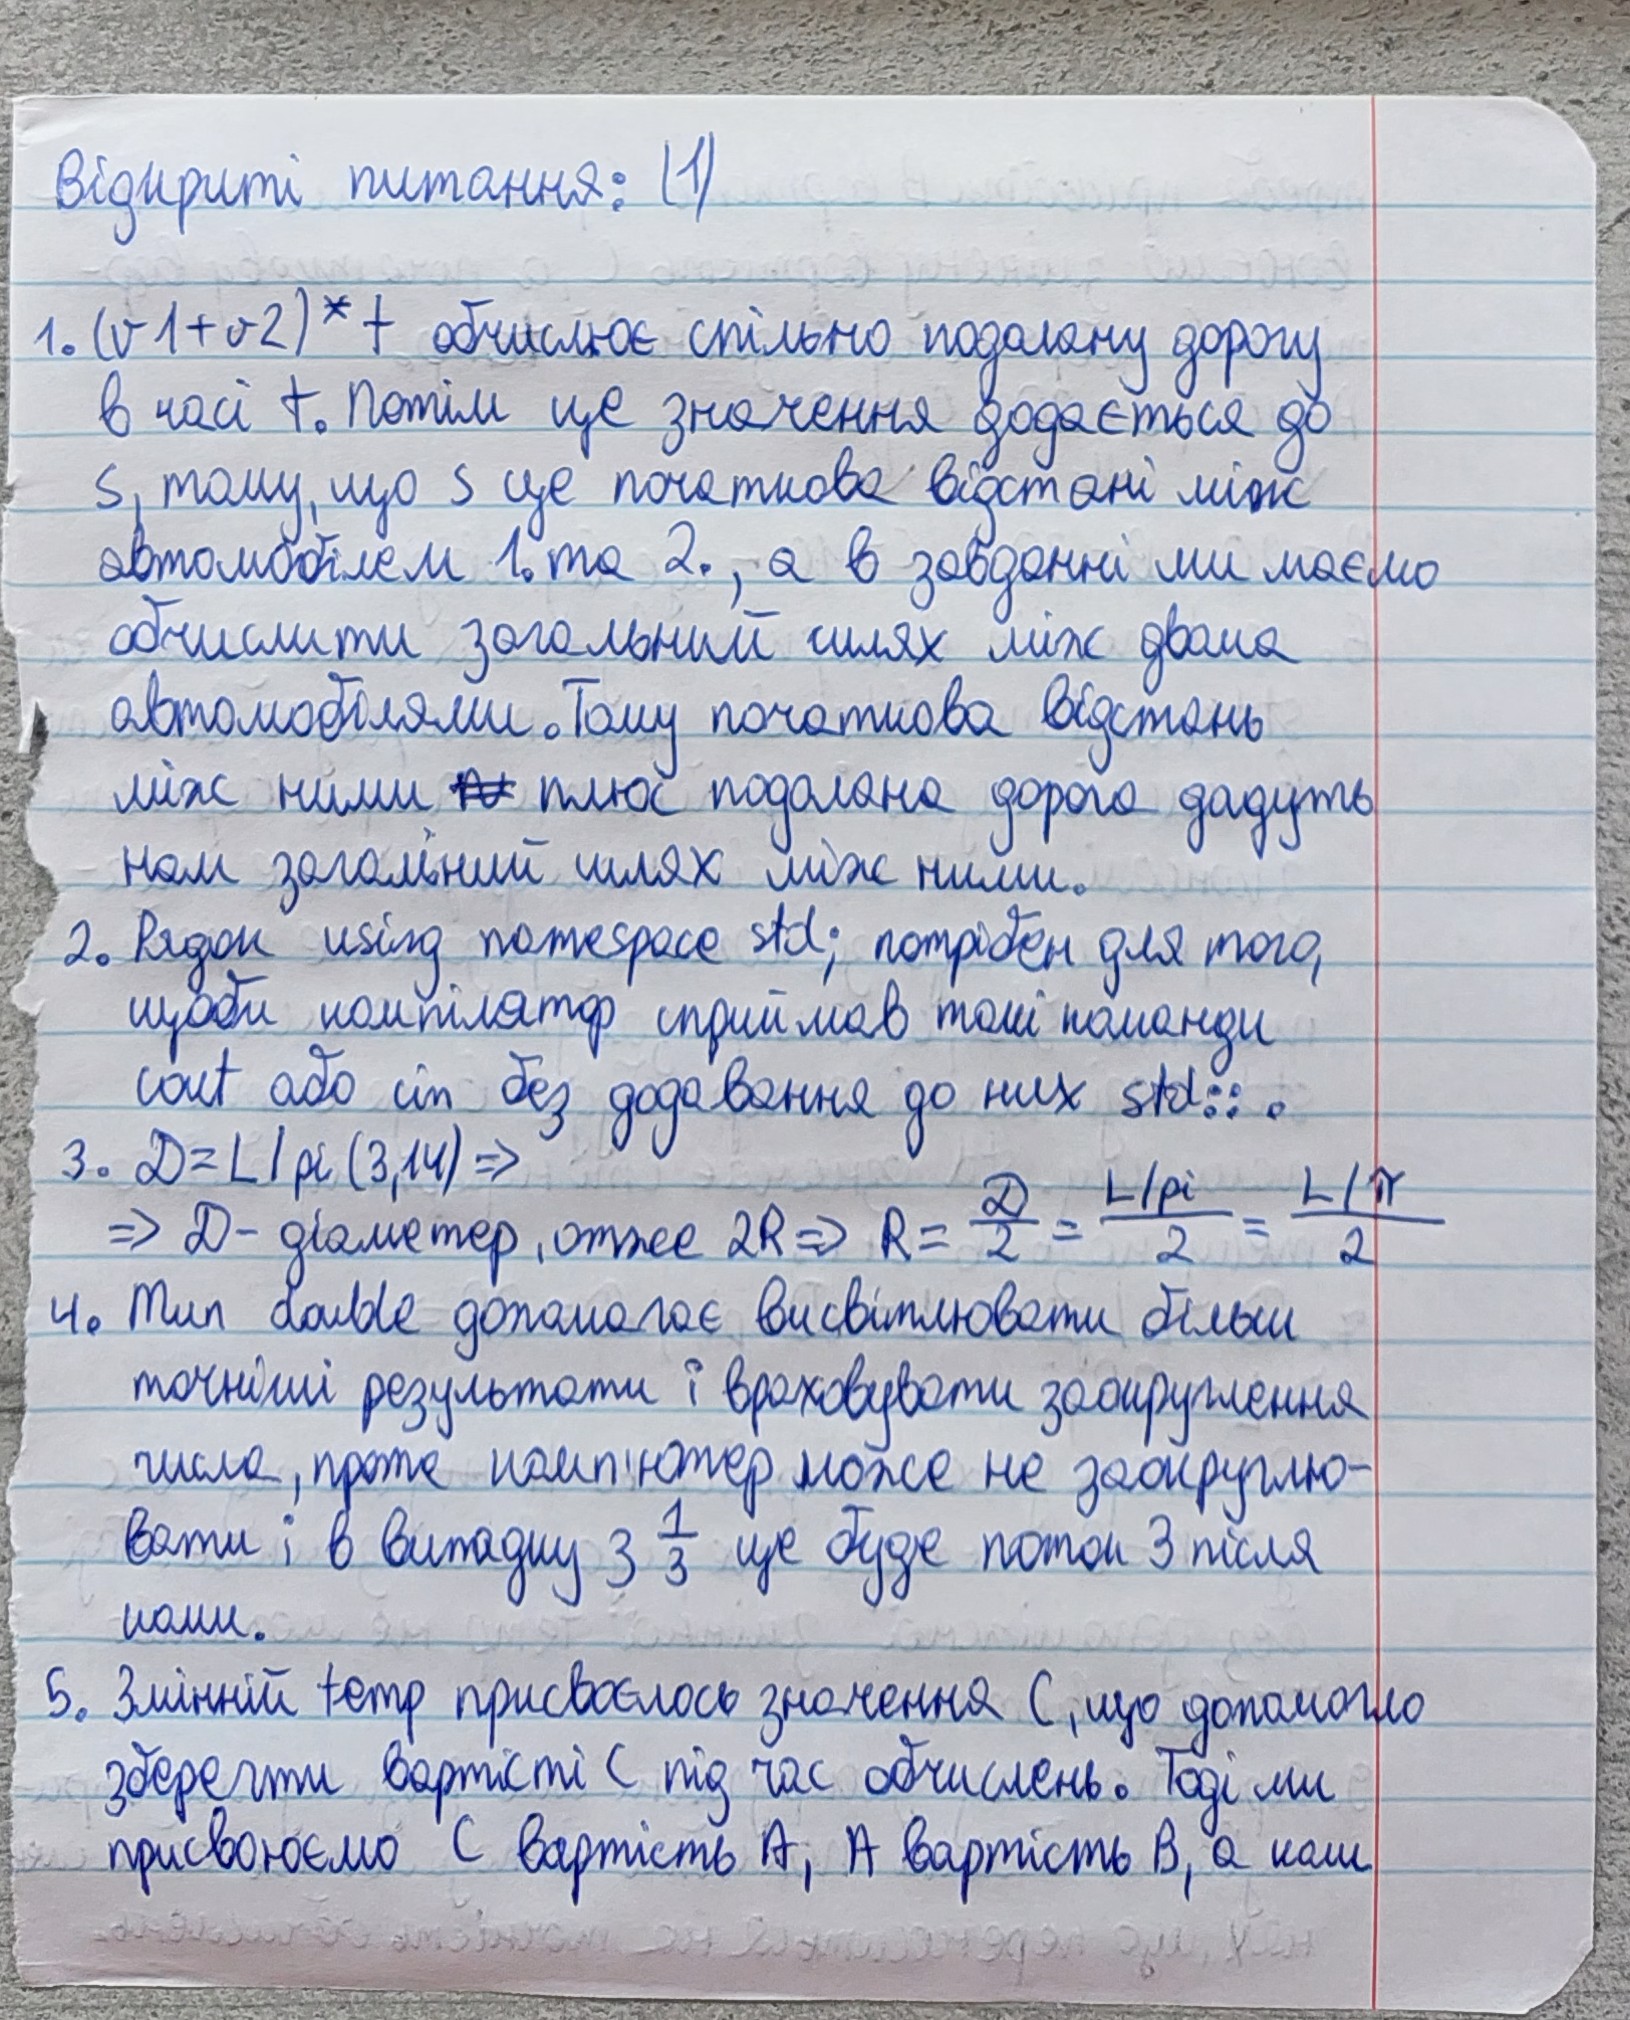 Відкриті питання: (1)
1. (v1+v2)*t обчислює спільно подалану дорогу
в часі t. Потім це значення додається до
s, тому, що s це початкова відстані між
автомобілем 1. та 2., а в завданні ми маємо
обчислити загальний шлях між двома
автомобілями. Тому початкова відстань
між ними плюс подалана дорога дадуть
нам загальний шлях між ними.
2. Рядок using namespace std; потрібен для того,
щоби компілятор сприймав такі команди
cout або cin без додавання до них std::.
3. D=L/pi(3,14) =>
=> D- діаметер, отже 2R => R = D/2 = L/pi/2 = L/π/2
4. Тип double допомагає висвітлювати більш
точніші результати і враховувати заокруглення
числа, проте комп'ютер може не заокруглю-
вати і в випадку 3 1/3 це буде поток 3 після
коми.
5. Змінній temp присвоєлось значення C, що допомогло
зберегти вартісті C під час обчислень. Тоді ми
присвоюємо C вартість A, A вартість B, а коли